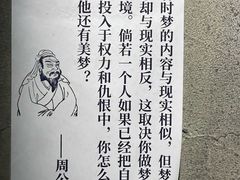 时梦的内容与现实相似，但梦
却与现实相反，这取决你做梦
境。倘若一个人如果已经把自
投入于权力和仇恨中，你怎么
他还有美梦？
——周公